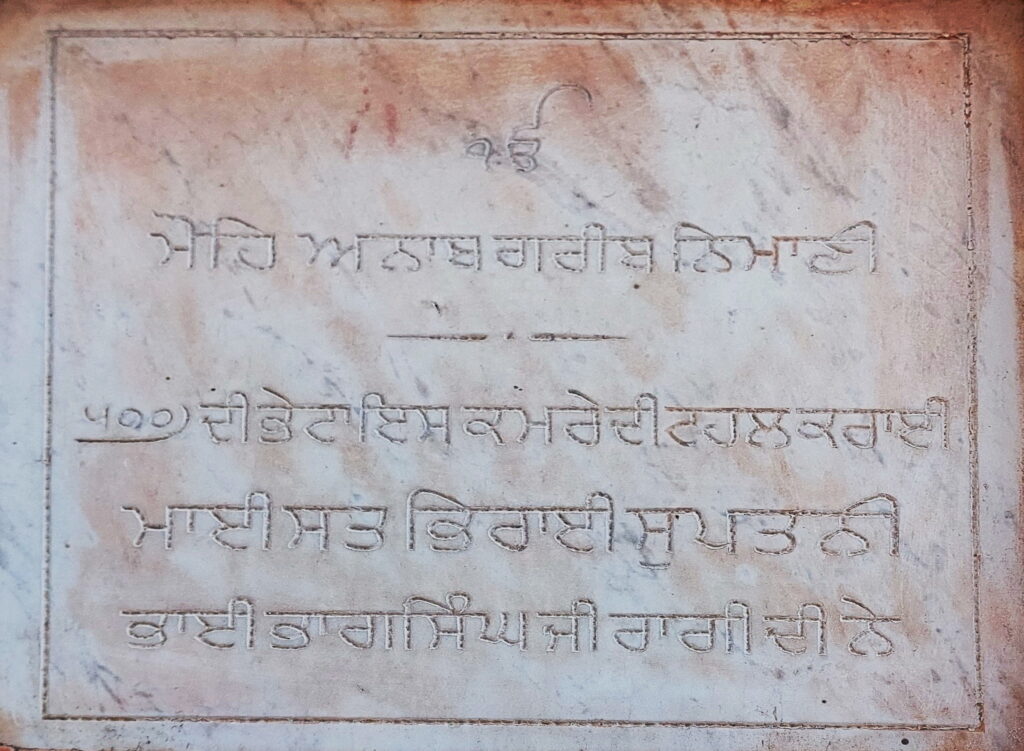 ੴ
ਮੋਹਿ ਅਨਾਥ ਗਰੀਬ ਨਿਮਾਣੀ
੫੦੦) ਦੀ ਭੇਟਾ ਇਸ ਕਮਰੇ ਦੀ ਟਹਲ ਕਰਾਈ
ਮਾਈ ਸਤ ਭਿਰਾਈ ਸੁਪਤਨੀ
ਭਾਈ ਭਾਗ ਸਿੰਘ ਜੀ ਰਾਗੀ ਦੀ ਨੇ